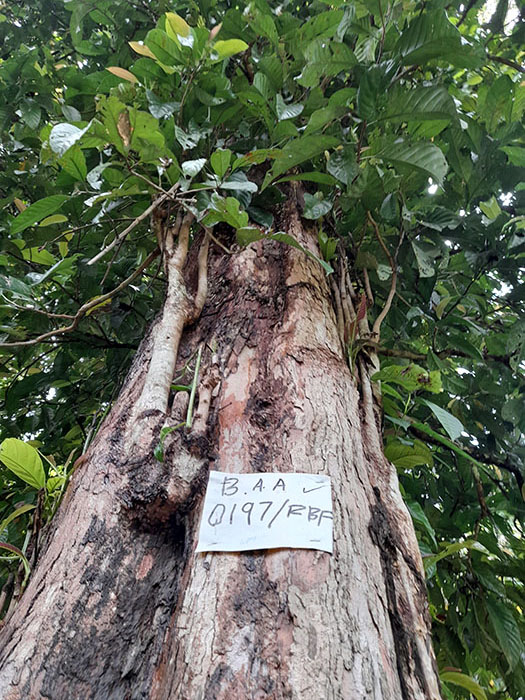 B.A.A ✓
Q197/RBF